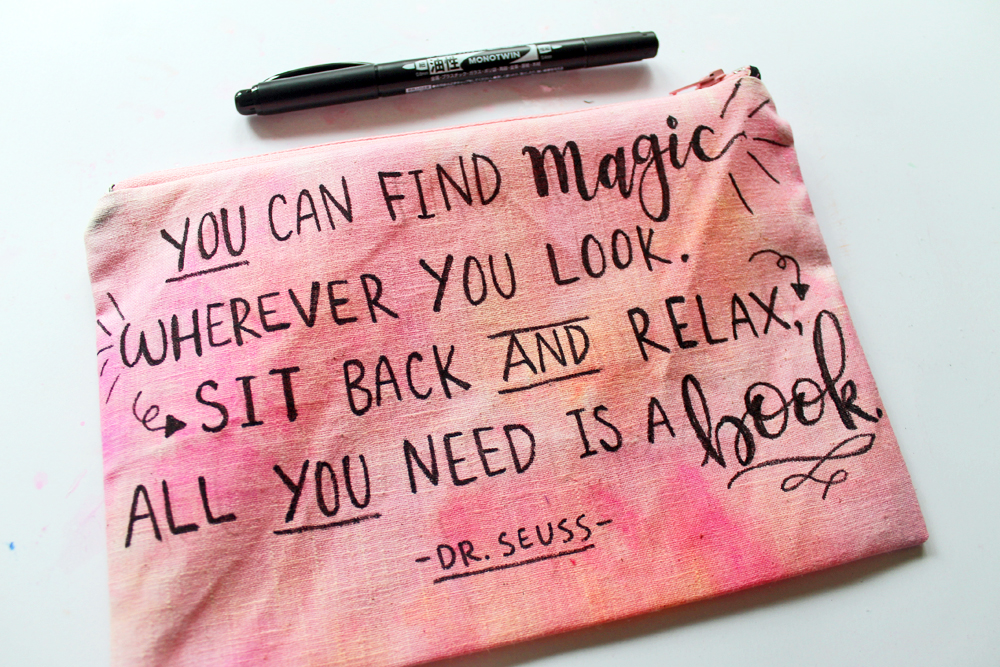 油性 MONOTWIN
YOU CAN FIND magic
WHEREVER YOU LOOK.
SIT BACK AND RELAX,
ALL YOU NEED IS A book.
-DR. SEUSS-